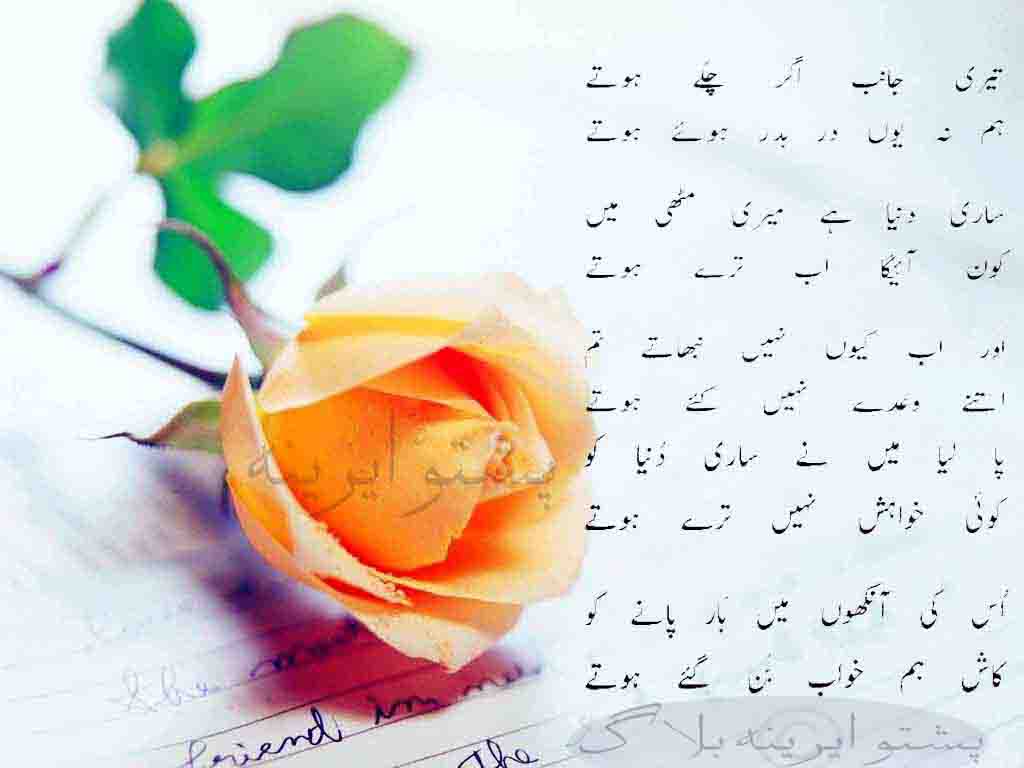 تیری جانب اگر چلے ہوتے
ہم نہ یوں در بدر ہوئے ہوتے
ساری دنیا ہے میری مٹھی میں
کون آئیگا اب ترے ہوتے
اور اب کیوں نہیں نبھاتے تم
اتنے وعدے نہیں کئے ہوتے
پا لیا میں نے ساری دُنیا کو
کوئی خواہش نہیں ترے ہوتے
اُس کی آنکھوں میں بَار پانے کو
کاش ہم خواب بُن گئے ہوتے
پشتو ایرینه
پشتو ایرینه بلاگ
friend in
the